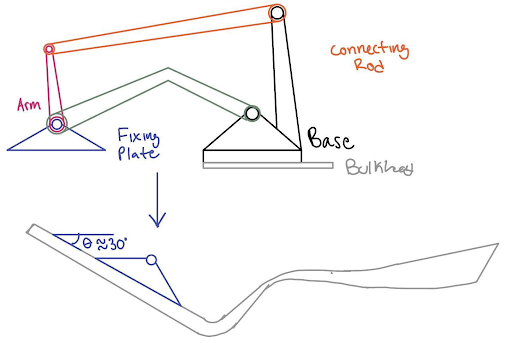 Connecting
Rod
Arm
Fixing
Plate
Base
Bulkhead
θ≈30°